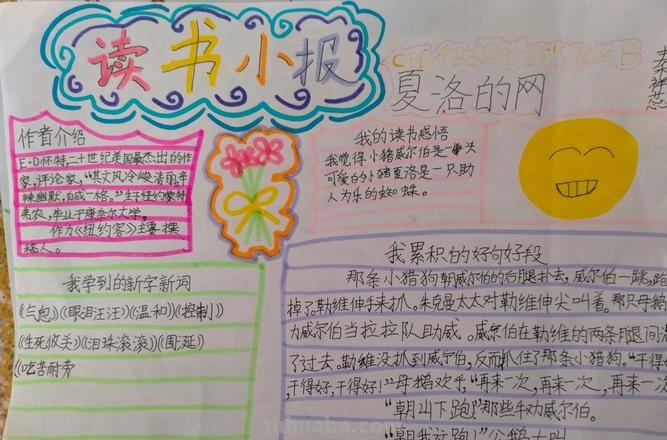 读书小报
CHARLOTTE'S WEB
夏洛的网
作者介绍
E·D怀特,二十世纪美国最杰出的作
家,评论家,“其文风冷峻清丽,辛
辣幽默,自成一格。”生于纽约蒙特
弗农,毕业于康奈尔大学。
作为《纽约客》主要撰
稿人。
我的读书感悟
我觉得小猪威尔伯是一头
可爱的小猪夏洛是一只助
人为乐的蜘蛛。
我学到的新字新词
(气息)(眼泪汪汪)(温和)(控制)
(生死攸关)(泪珠滚滚)(周延)
(吃苦耐劳
我累积的好句好段
那条小猎狗朝威尔伯的后腿扑去,威尔伯一跳,跑
掉了,勒维伸手来抓。朱克曼太太对勒维伸尖叫着。那只母鹅
为威尔伯当拉拉队助威。威尔伯在勒维的两条腿间
了过去.勒维没抓到威尔伯,反而抓住了那条小猎狗。“干得
干得好,干得好!”母鹅欢乎,“再来一次,再来一次,再来一次
“朝山下跑!”那些
威尔伯。
tuhuaba.com